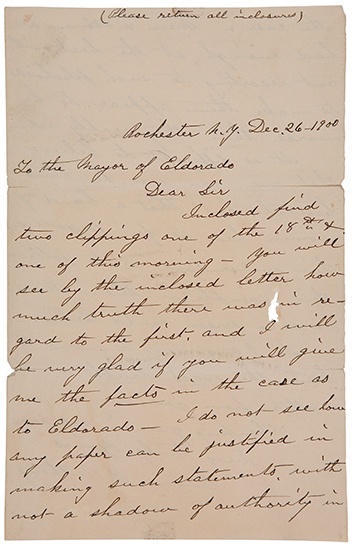 (Please return all inclosures)
Rochester N.Y. Dec. 26-1900
To the Mayor of Eldorado
Dear Sir
Inclosed find
two clippings one of the 18th &
one of this morning - You will
see by the inclosed letter how
much truth there was in re-
gard to the first, and I will
be very glad if you will give
me the facts in the case as
to Eldorado - I do not see how
any paper can be justified in
making such statements, with
not a shadow of authority in